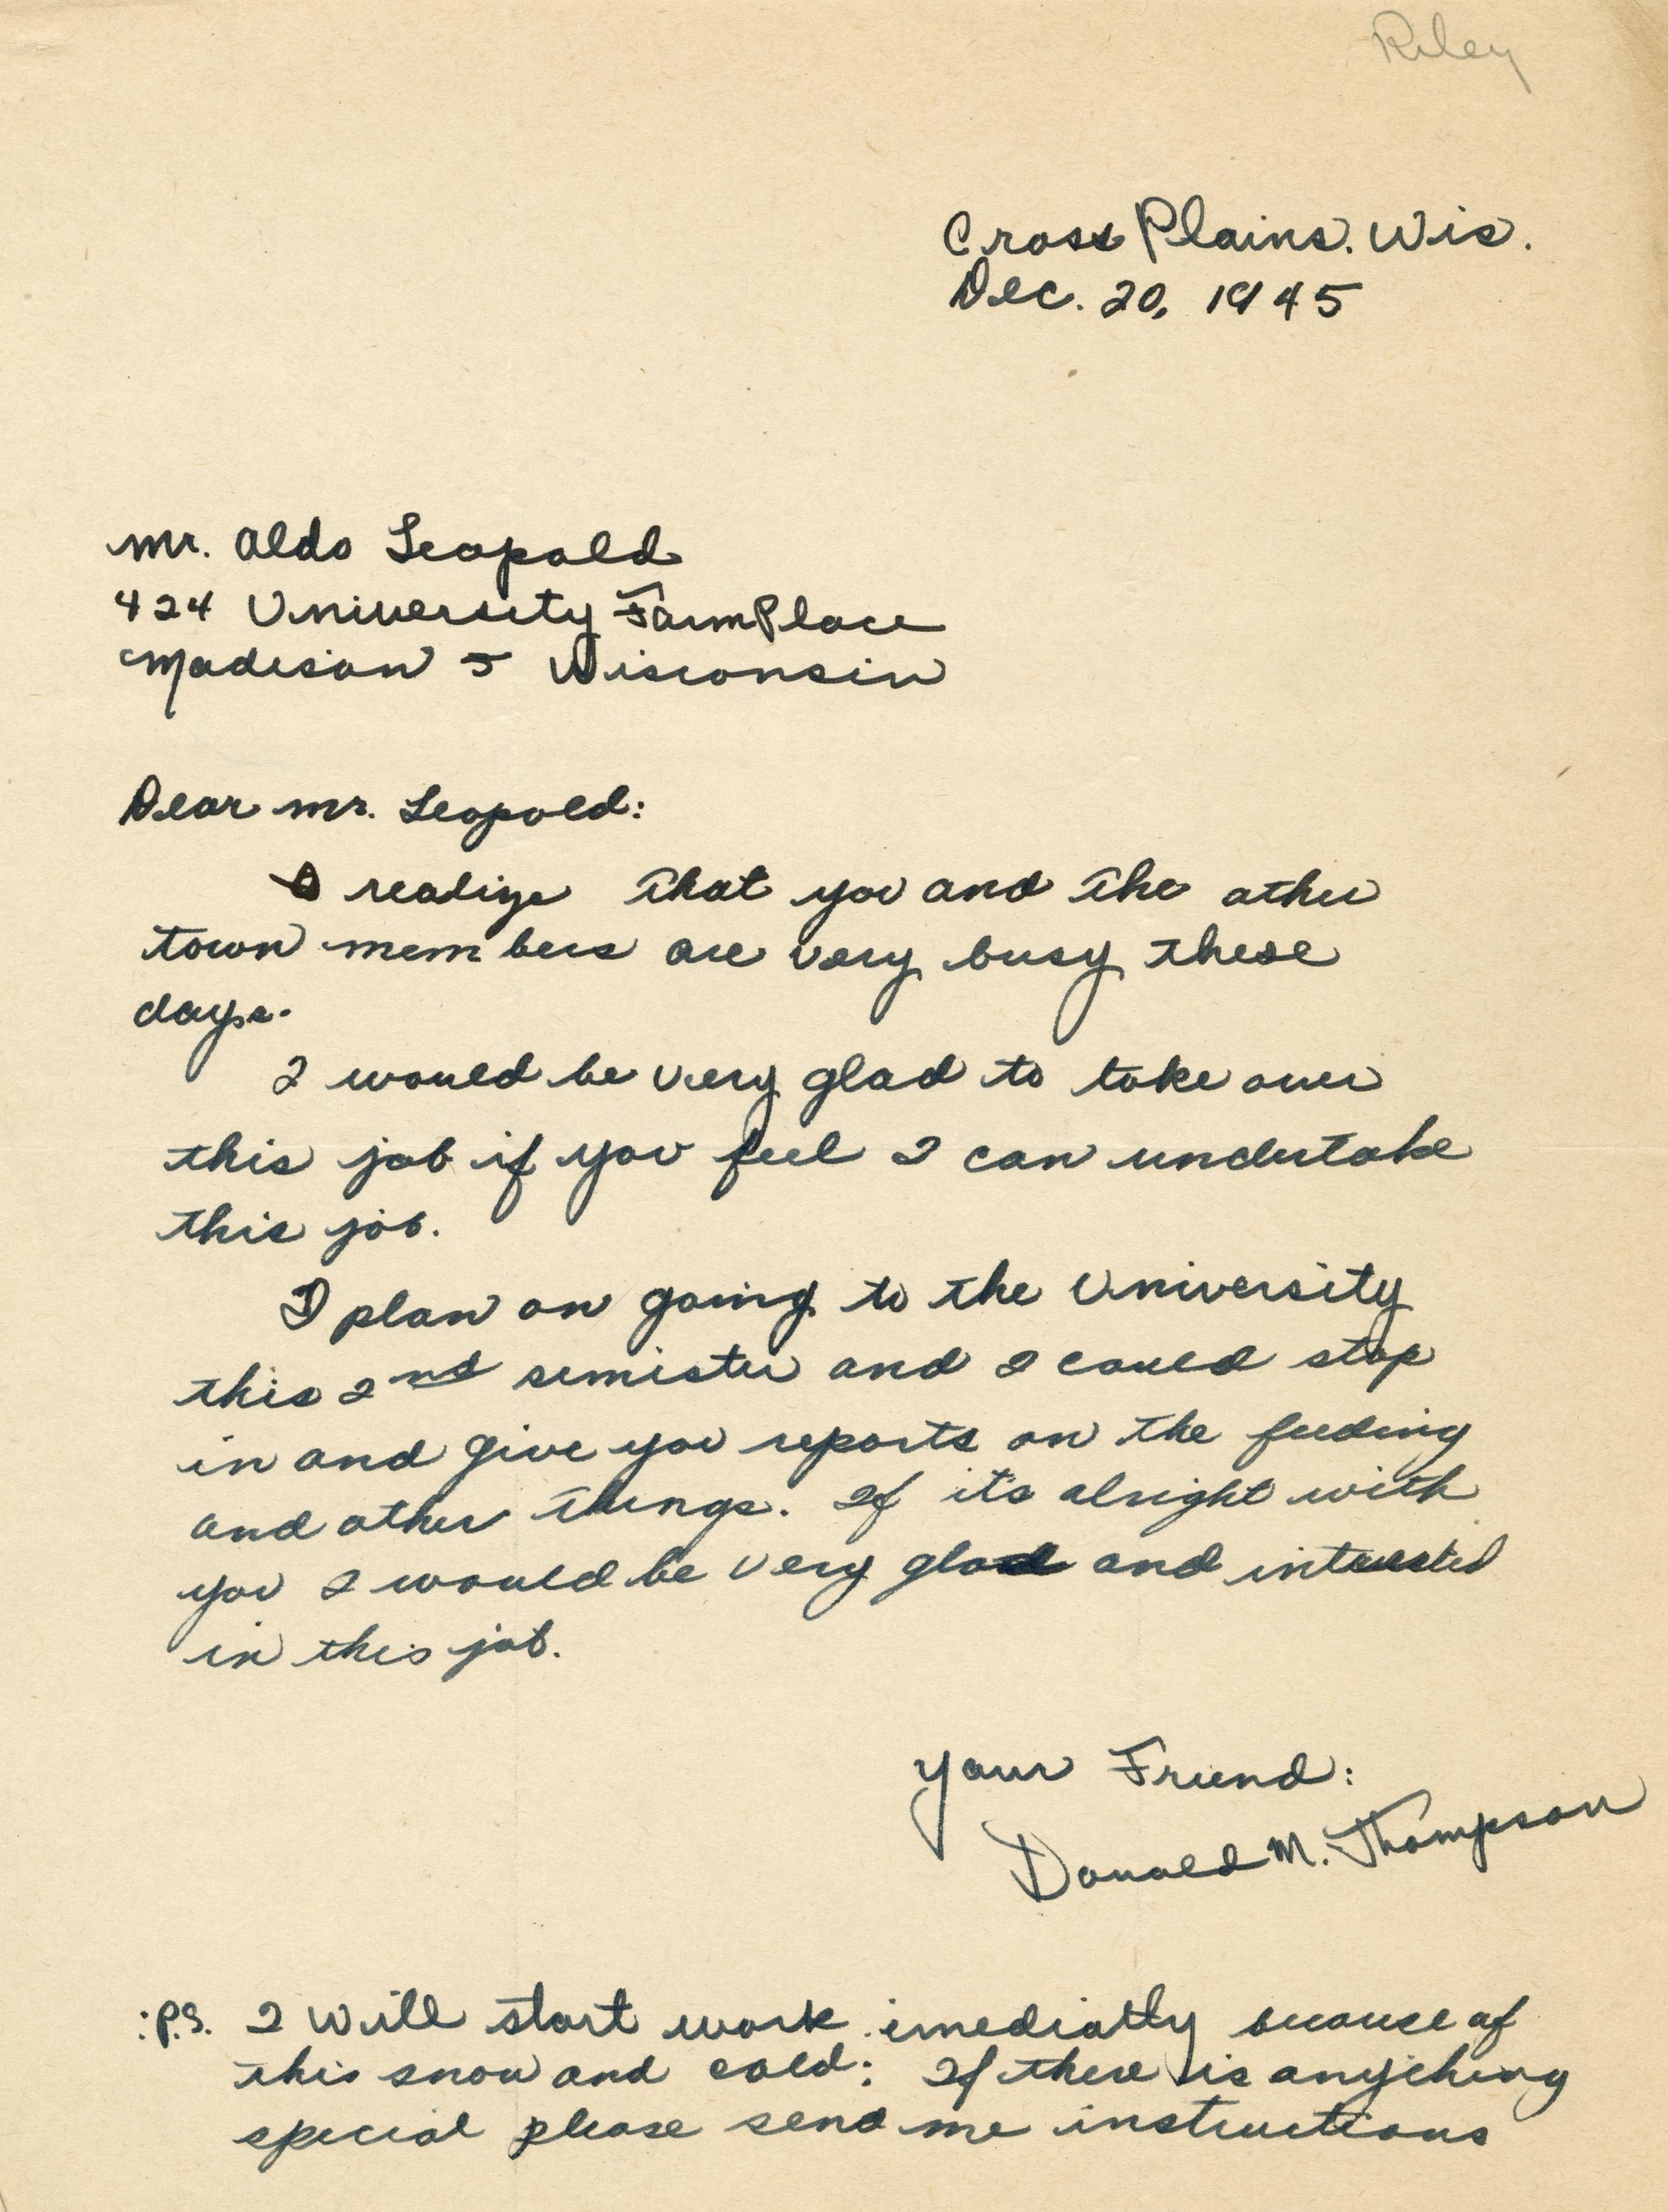 Riley
Cross Plains. Wis.
Dec. 20, 1945
Mr. Aldo Leopold
424 University Farm Place
Madison 5 Wisconsin
Dear Mr. Leopold:
I realize that you and the other
town members are very busy these
days.
I would be very glad to take over
this job if you feel I can undertake
this job.
I plan on going to the University
this 2nd semister and I could stop
in and give you reports on the feeding
and other things. If it's alright with
you I would be very glad and interested
in this job.
Your Friend:
Donald M. Thompson
:P.S. I will start work imediatly because of
this snow and cold: If there is anything
special please send me instructions